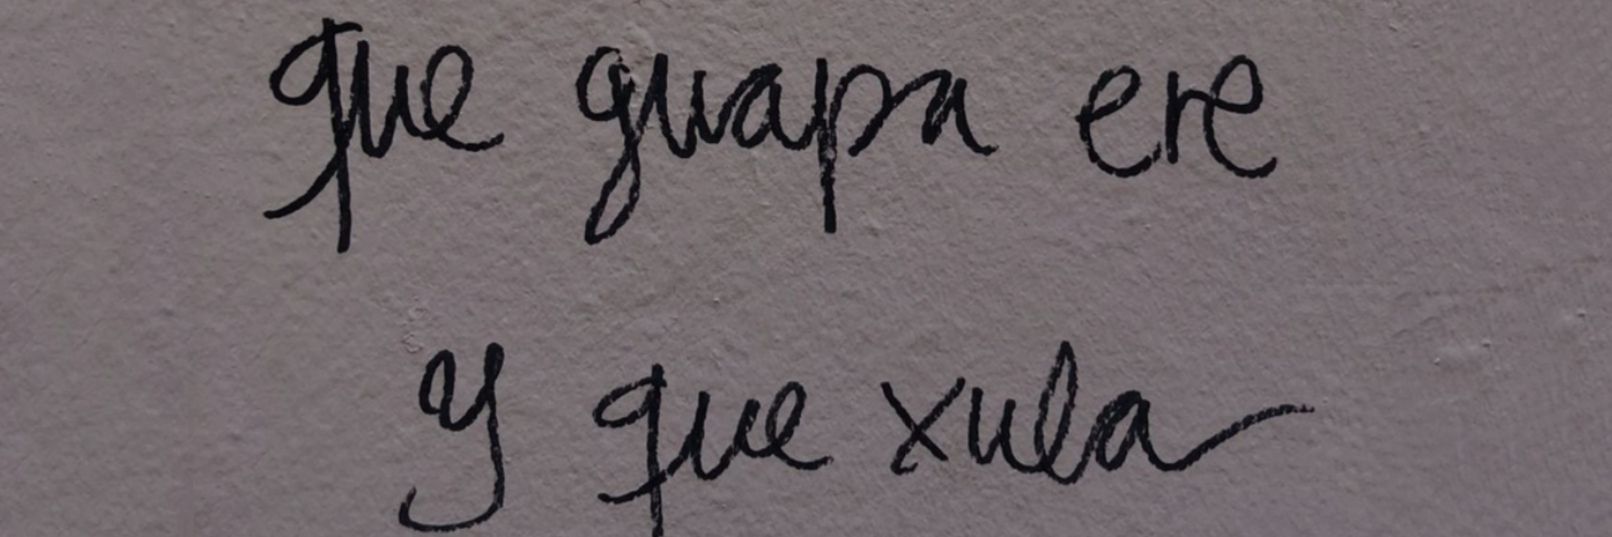 que guapa ere
y que xula